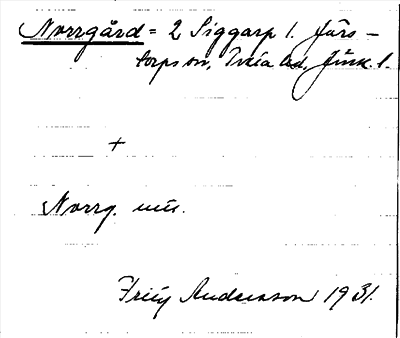 Norrgård = 2 Siggarp 1. Järs-
torps sn, Tveta hd, Jönk. l.
+
Norrg. un.
Frity Anderson 1931.